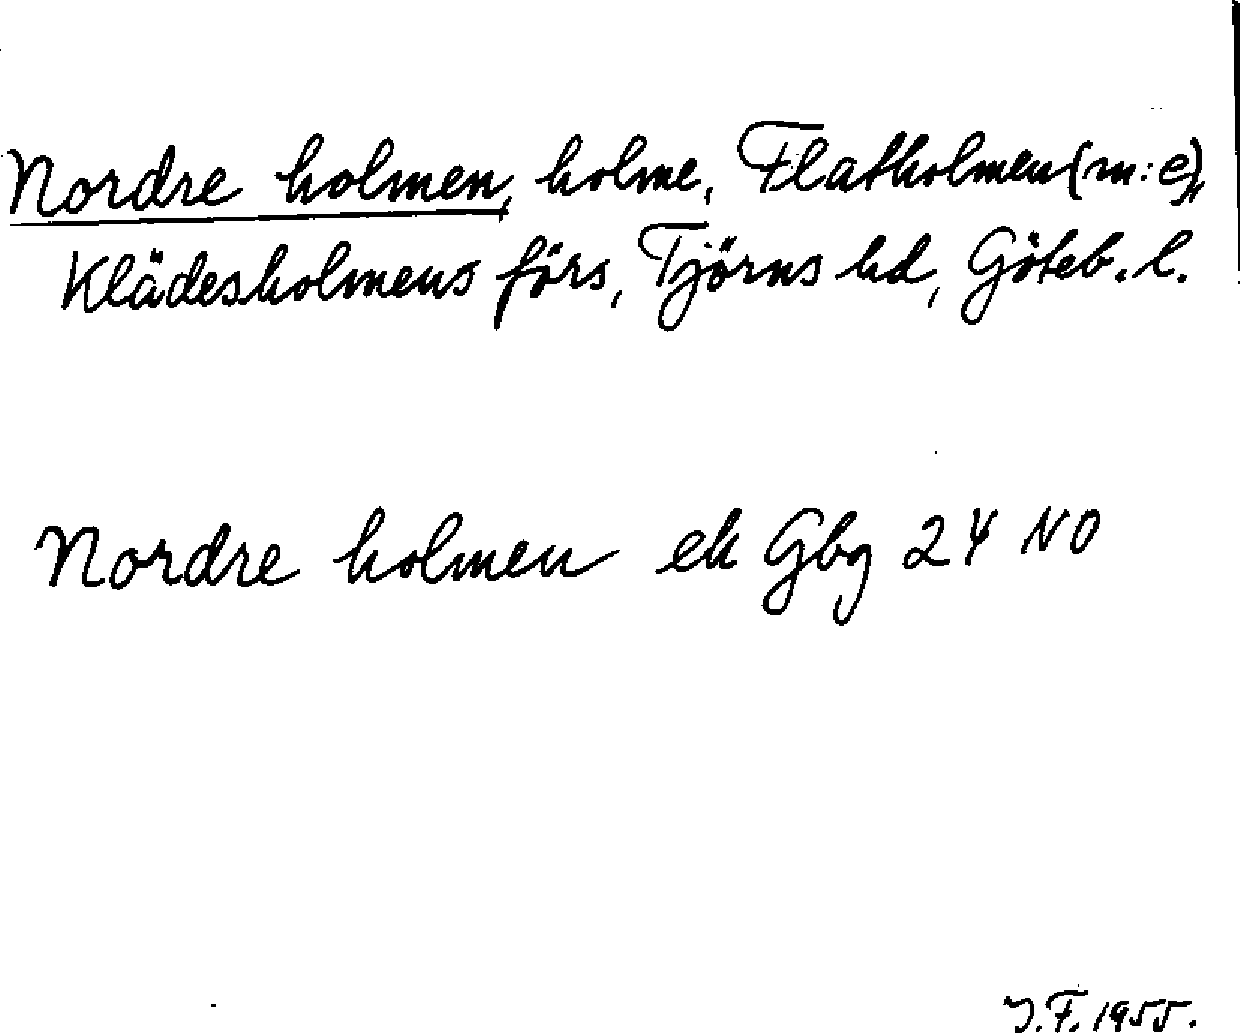 Nordre holmen, holme, Flatholmen (m:e),
Klädesholmens förs, Tjörns hd, Göteb. l.
Nordre holmen ek Gbg 24 NO
J.F. 1955.